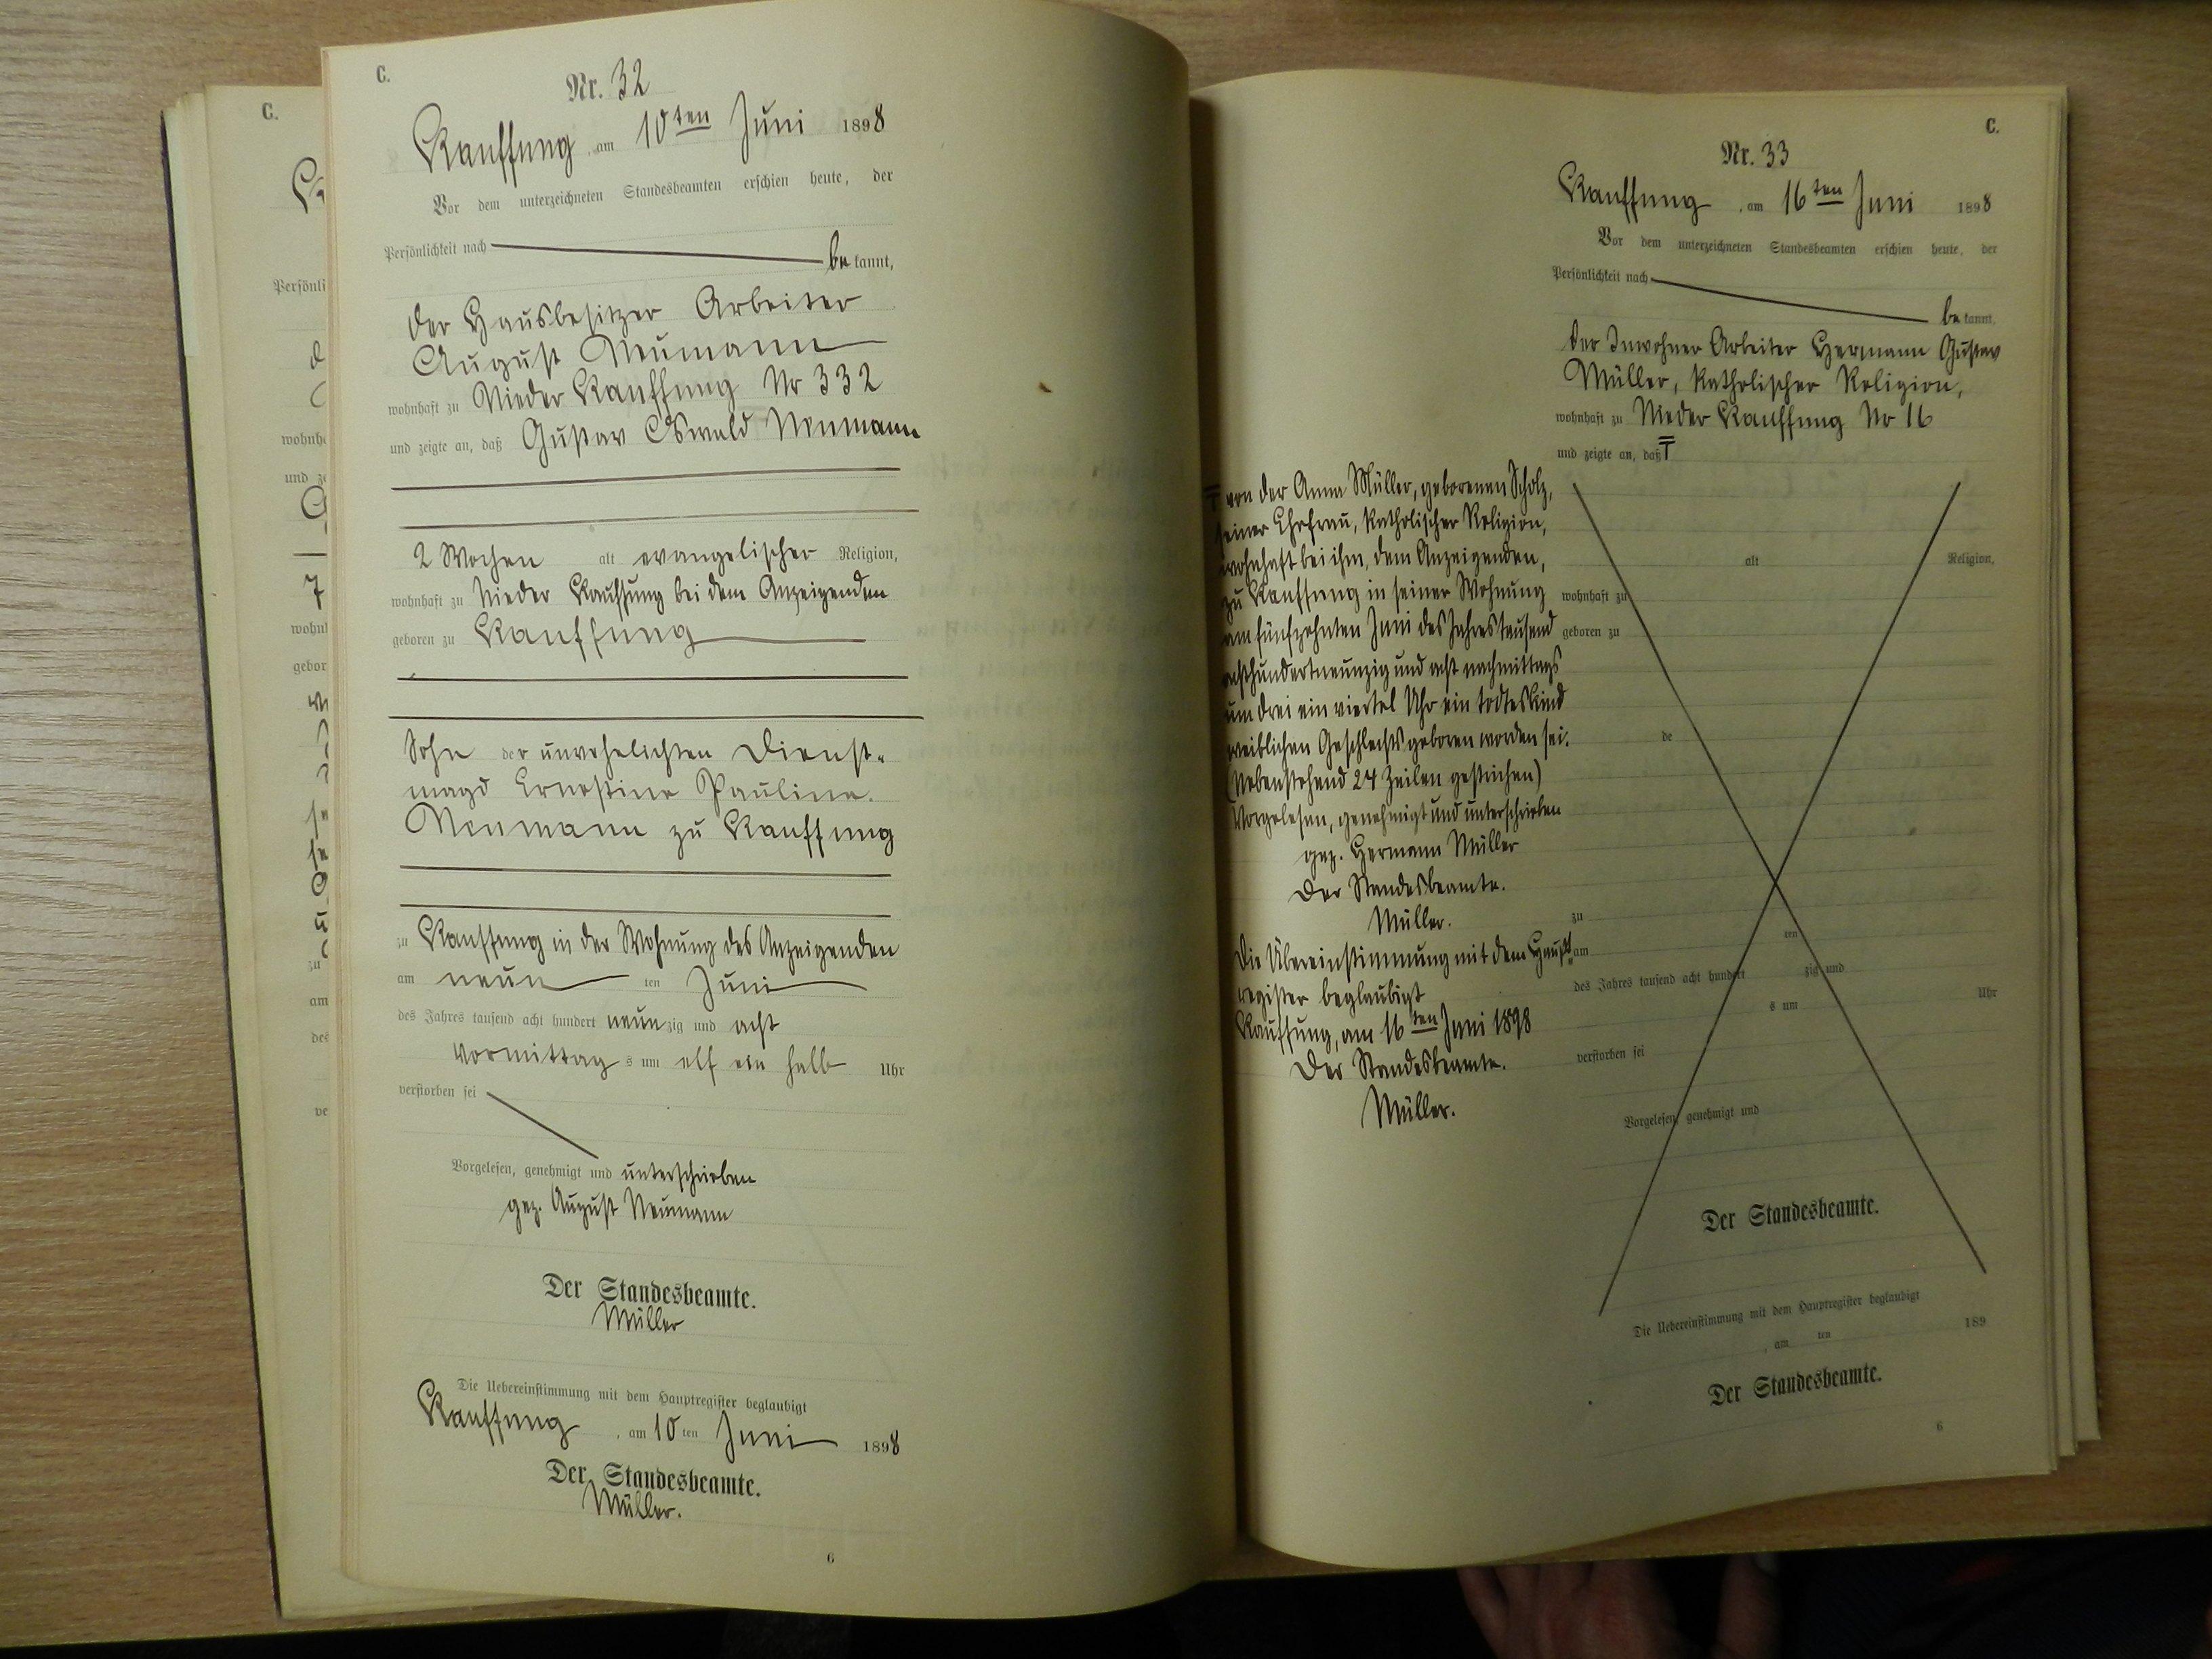 C.
Nr. 32
Kauffung, am 10ten Juni 1898
Vor dem unterzeichneten Standesbeamten erschien heute, der
Persönlichkeit nach
bekannt,
der Hausbesitzer Arbeiter
August Neumann
wohnhaft zu Nieder Kauffung Nr 332
und zeigte an, daß Gustav Oswald Neumann
2 Wochen alt evangelischer Religion,
wohnhaft zu Nieder Kauffung bei dem Anzeigenden
geboren zu Kauffung
Sohn der unverehelichten Dienst-
magd Ernestine Pauline
Neumann zu Kauffung
zu Kauffung in der Wohnung des Anzeigenden
am neun ten Juni
des Jahres tausend acht hundert neunzig und acht
Vormittags um elf ein halb Uhr
verstorben sei
Vorgelesen, genehmigt und unterschrieben
gez. August Neumann
Der Standesbeamte.
Müller
Die Uebereinstimmung mit dem Hauptregister beglaubigt
Kauffung, am 10ten Juni 1898
Der Standesbeamte.
Müller.
6
C.
Nr. 33
Kauffung, am 16ten Juni 1898
Vor dem unterzeichneten Standesbeamten erschien heute, der
Persönlichkeit nach
bekannt,
der Inwohner Arbeiter Hermann Gustav
Müller, katholischer Religion,
wohnhaft zu Nieder Kauffung No 16
und zeigte an, daß
von der Anna Müller, geborenen Scholz,
seiner Ehefrau, katholischer Religion,
wohnhaft bei ihm, dem Anzeigenden,
zu Kauffung in seiner Wohnung
am fünfzehnten Juni des Jahres tausend
achthundertneunzig und acht nachmittags
um drei ein viertel Uhr ein todtes Kind
weiblichen Geschlechts geboren worden sei.
(Nebenstehend 24 Zeilen gestrichen)
Vorgelesen, genehmigt und unterschrieben
gez. Hermann Müller
Der Standesbeamte.
Müller.
Die Übereinstimmung mit dem Haupt-
register beglaubigt
Kauffung, am 16ten Juni 1898
Der Standesbeamte.
Müller.
alt Religion,
wohnhaft zu
geboren zu
de
zu
am ten
des Jahres tausend acht hundert zig und
s um Uhr
verstorben sei
Vorgelesen, genehmigt und
Der Standesbeamte.
Die Uebereinstimmung mit dem Hauptregister beglaubigt
, am ten 189
Der Standesbeamte.
6
C.
Persönli
wohnh
und ze
7
wohnh
gebor
zu
am
des
ve